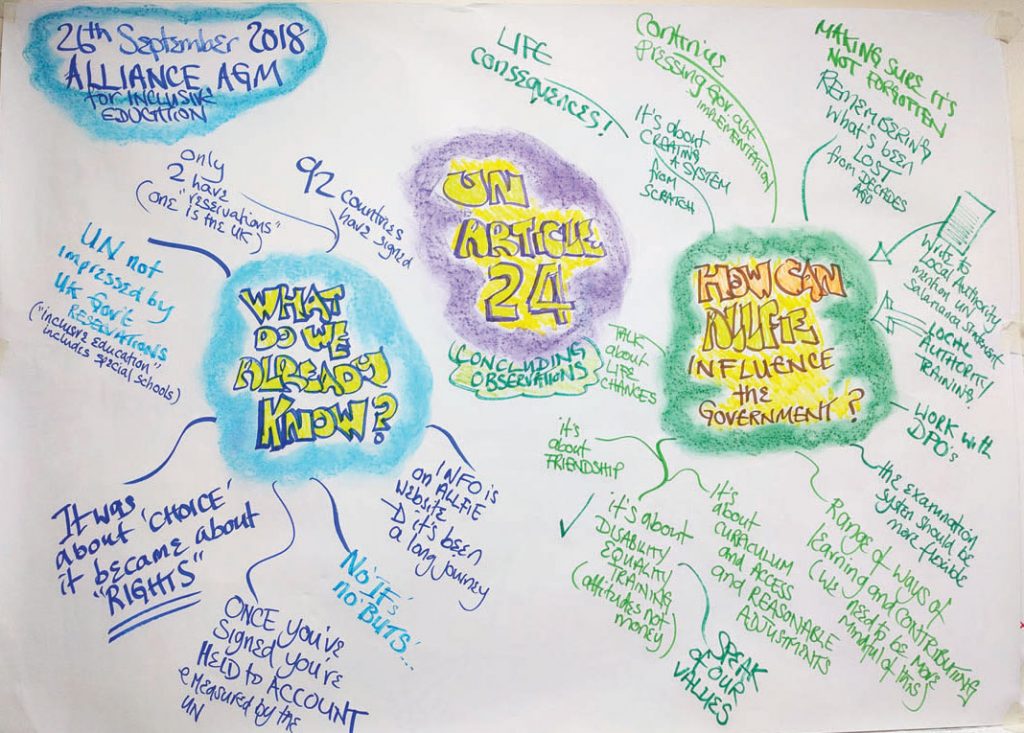 26th September 2018
ALLIANCE AGM
for INCLUSIVE
EDUCATION
only
2 have
"reservations"
(one is the UK)
92 countries
have signed
UN not
impressed by
UK Gov't
RESERVATIONS
("inclusive education"
includes special schools)
WHAT
DO WE
ALREADY
KNOW?
It was
about 'CHOICE'
it became about
"RIGHTS"
ONCE YOU'VE
Signed you're
HELD to ACCOUNT
& measured by the
UN
No 'IF's
no 'BUTS'...
INFO is
on ALLFIE
website
it's been
a long journey
UN
ARTICLE
24
CONCLUDING
OBSERVATIONS
LIFE
CONSEQUENCES!
It's about
CREATING
a SYSTEM
from
SCRATCH
CONTINUE
pressing Gov abt
IMPLEMENTATION
MAKING SURE IT'S
NOT FORGOTTEN
REMEMBERING
What's been
LOST
from DECADES
AGO
HOW CAN
ALLFIE
INFLUENCE
the
GOVERNMENT?
Write to
Local Authority
mention UN
Salamanca statement
LOCAL
AUTHORITY
TRAINING!
WORK with
DPO's
the examination
system should be
more flexible
Range of ways of
learning and contributing
(we need to be more
mindful of this)
It's
about
CURRICULUM
and ACCESS
and REASONABLE
ADJUSTMENTS
TALK
about
LIFE
CHANCES
it's
about
FRIENDSHIP
it's about
DISABILITY
EQUALITY
TRAINING
(attitudes not
money)
SPEAK
of OUR
VALUES